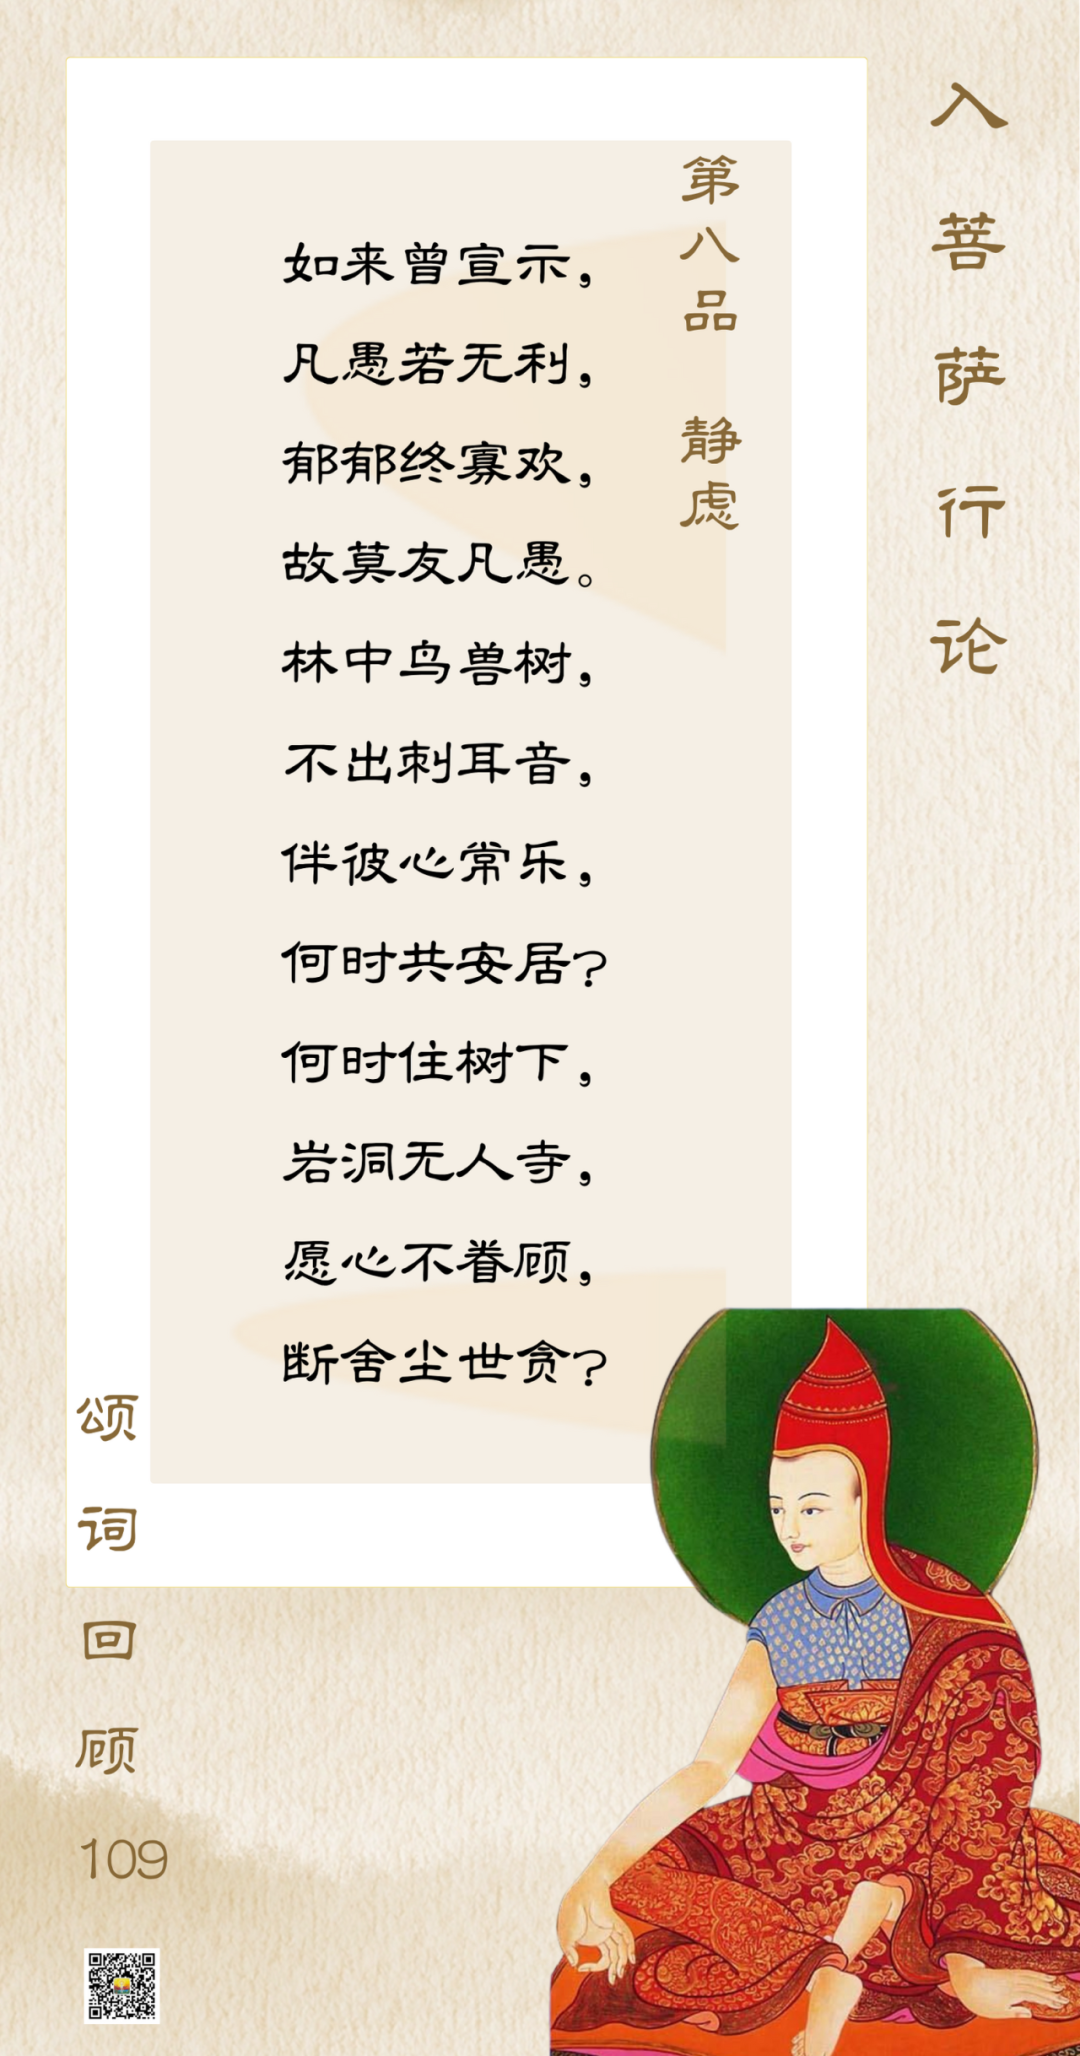 入菩萨行论
第八品 静虑
如来曾宣示，
凡愚若无利，
郁郁终寡欢，
故莫友凡愚。
林中鸟兽树，
不出刺耳音，
伴彼心常乐，
何时共安居？
何时住树下，
岩洞无人寺，
愿心不眷顾，
断舍尘世贪？
颂词回顾
109